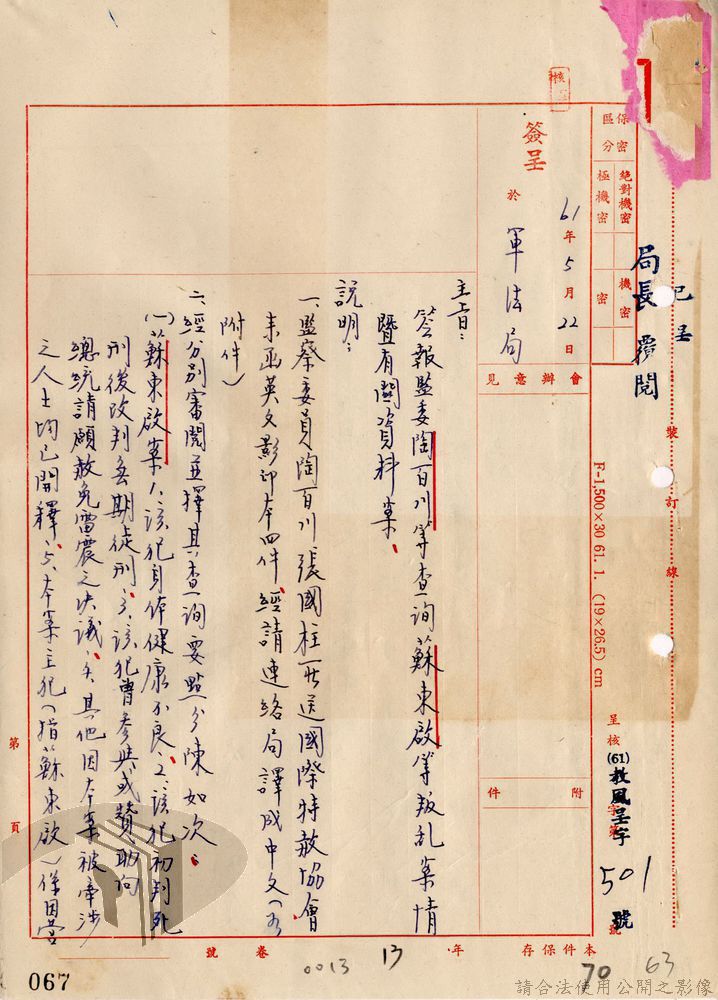 已呈
局長覈閱
裝訂線
呈核
(61)教風呈字
501號
F-1,500×30 61. 1. (19×26.5) cm
保密區分
絕對機密
極機密
機密
密
核
簽呈
61年5月22日
於軍法局
會辦意見
附件
主旨：
簽報監委陶百川等查询蘇東啟等叛乱案情
暨有關資料案、
説明：
一、監察委員陶百川張國柱所送國際特赦協會
來函英文影印本四件、經請連絡局譯成中文（如
附件）
二、經分別審閱並擇其查询要點分陳如次：
(一)蘇東啟案1.該犯身体健康不良、2.該犯初判死
刑後改判無期徒刑、3.該犯曾參與或贊助向
總統請願赦免雷震之決議、4.其他因本案被牽涉
之人士均已開釋、5.本案主犯（指蘇東啟）係因营
第 頁
本件保存 年 卷 號
13
0013
70
63
067
請合法使用公開之影像